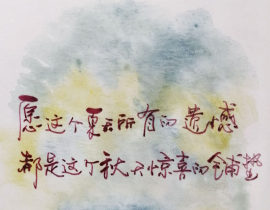 愿这个夏天所有的遗憾
都是这个秋天惊喜的铺垫